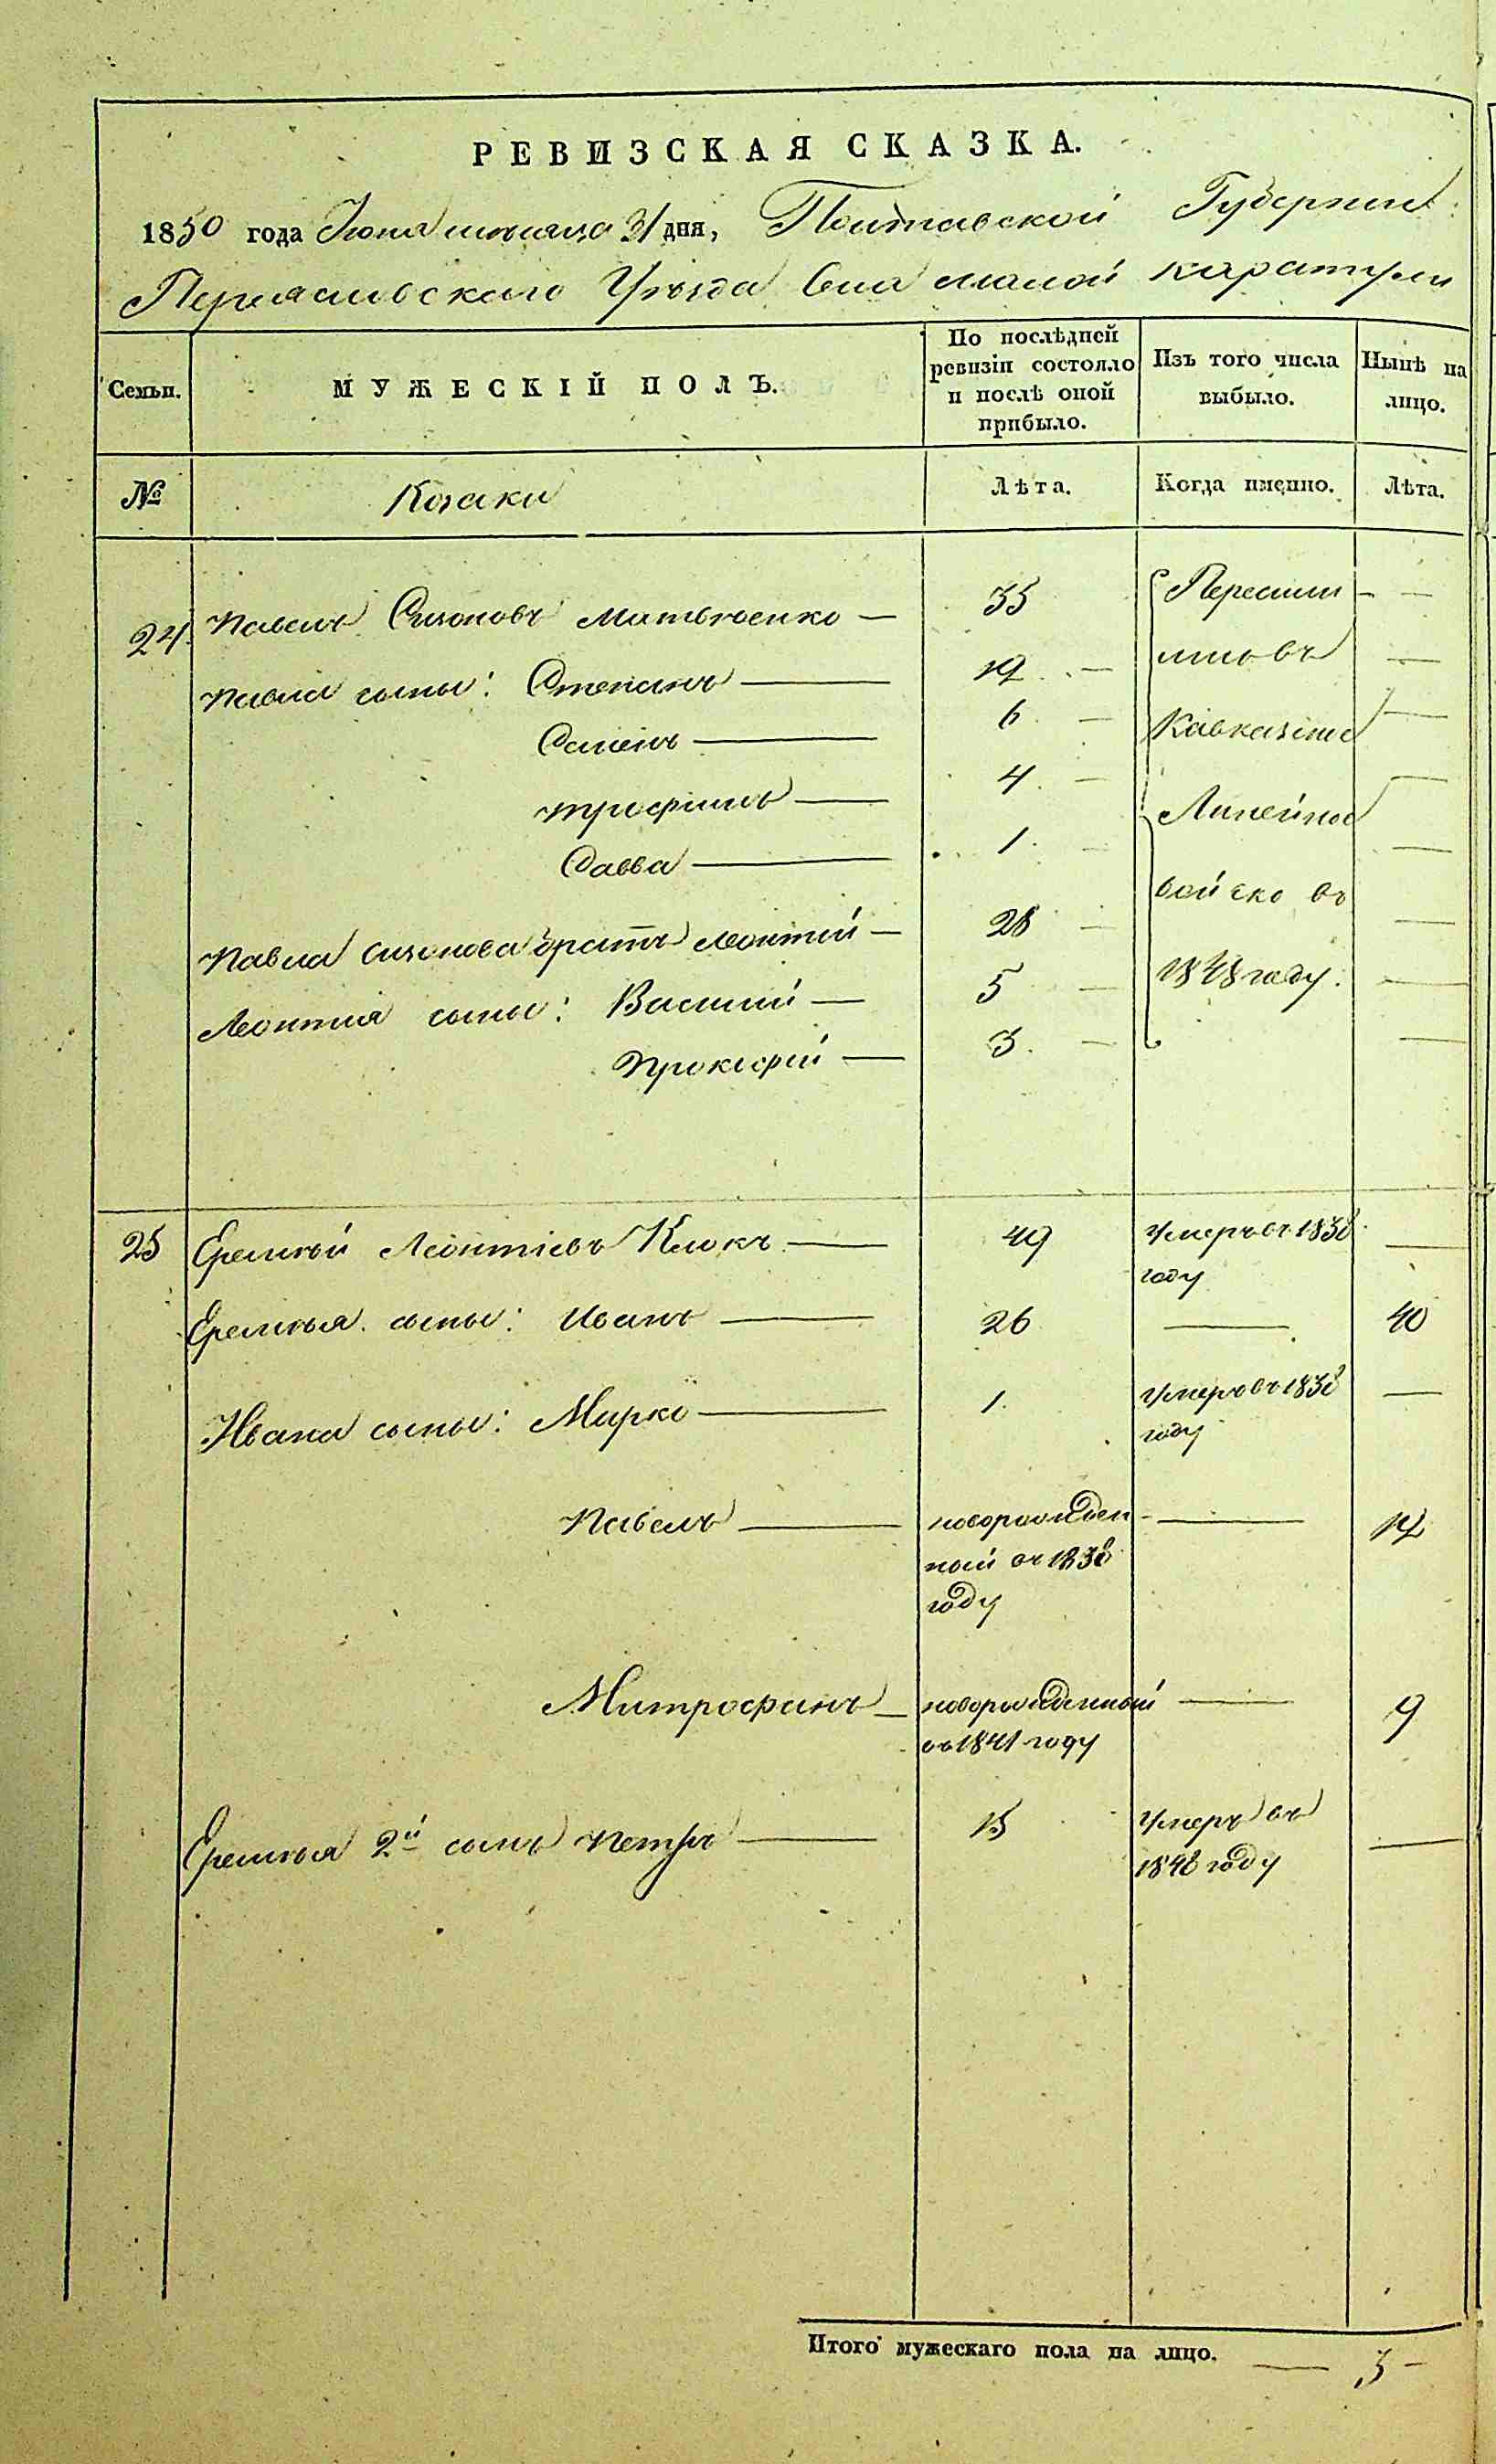 РЕВИЗСКАЯ СКАЗКА.
1850 года Іюня мѣсяца 31 дня, Полтавской Губерніи
Переяславского Уѣзда Села малой каратули
Семьи.
МУЖЕСКІЙ ПОЛЪ.
По послѣдней
ревизіи состояло
и послѣ оной
прибыло.
Изъ того числа
выбыло.
Нынѣ на
лицо.
№
Козаки
Лѣта.
Когда именно.
Лѣта.
24. Павелъ Сизоновъ Матвѣенко — 35
Павла сыны: Степанъ — 12 —
Семенъ — 6 —
Трофимъ — 4 —
Савва — 1 —
Павла Сизонова братъ Леонтій — 28 —
Леонтія сыны: Василій — 5 —
Прокофій — 3 —
Пересили
лись въ
Кавказіое
Линейное
войско въ
1848 году.
25 Еремѣй Леонтіевъ Клюкъ — 49 Умеръ въ 1838 —
году
Еремѣя сыны: Иванъ — 26 — 40
Ивана сыны: Марко — 1. Умеръ въ 1838 —
году
Павелъ — новорожден- — 12
ный въ 1838
году
Митрофанъ — новорожденный — 9
въ 1841 году
Еремѣя 2й сынъ Петръ — 15 Умеръ въ —
1848 году
Итого мужескаго пола на лицо. — 3 —